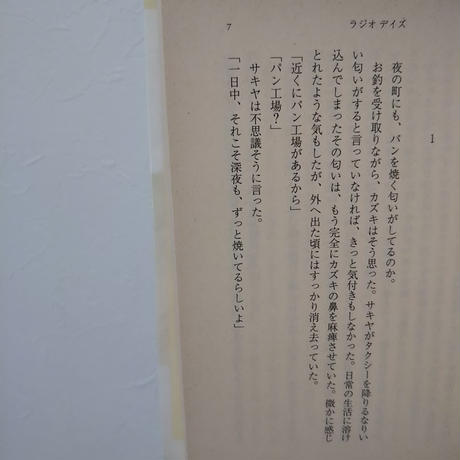 7
ラジオ デイズ
1
夜の町にも、パンを焼く匂いがしてるのか。
お釣を受け取りながら、カズキはそう思った。サキヤがタクシーを降りるなりい
い匂いがすると言っていなければ、きっと気付きもしなかった。日常の生活に溶け
込んでしまったその匂いは、もう完全にカズキの鼻を麻痺させていた。微かに感じ
とれたような気もしたが、外へ出た頃にはすっかり消え去っていた。
「近くにパン工場があるから」
「パン工場?」
サキヤは不思議そうに言った。
「一日中、それこそ深夜も、ずっと焼いてるらしいよ」